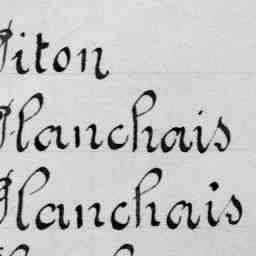 Piton
Planchais
Planchais